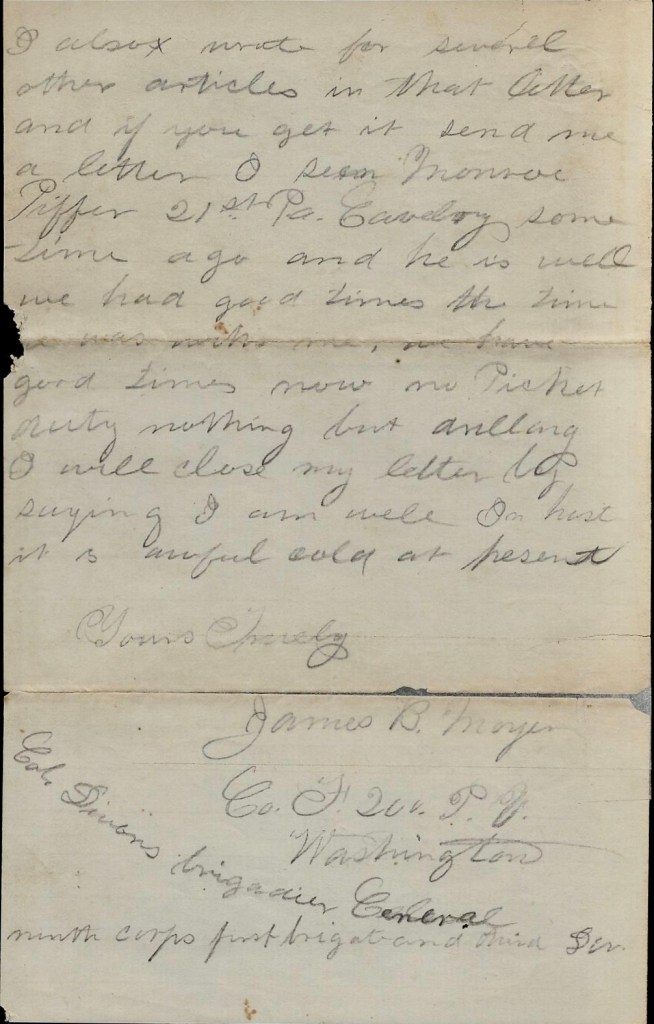 I also wrote for several
other articles in that letter
and if you get it send me
a letter I seen Monroe
Piffer 21st Pa. Cavelry some
time ago and he is well
we had good times the time
he was with me, we have
good times now no Picket
duty nothing but drilling
I will close my letter by
saying I am well
it is awful cold at present
Yours Truely
James B. Moyer
Co. F. 200. P. V.
Washington
Col.
brigadier General
ninth corps first brigate and third Div.